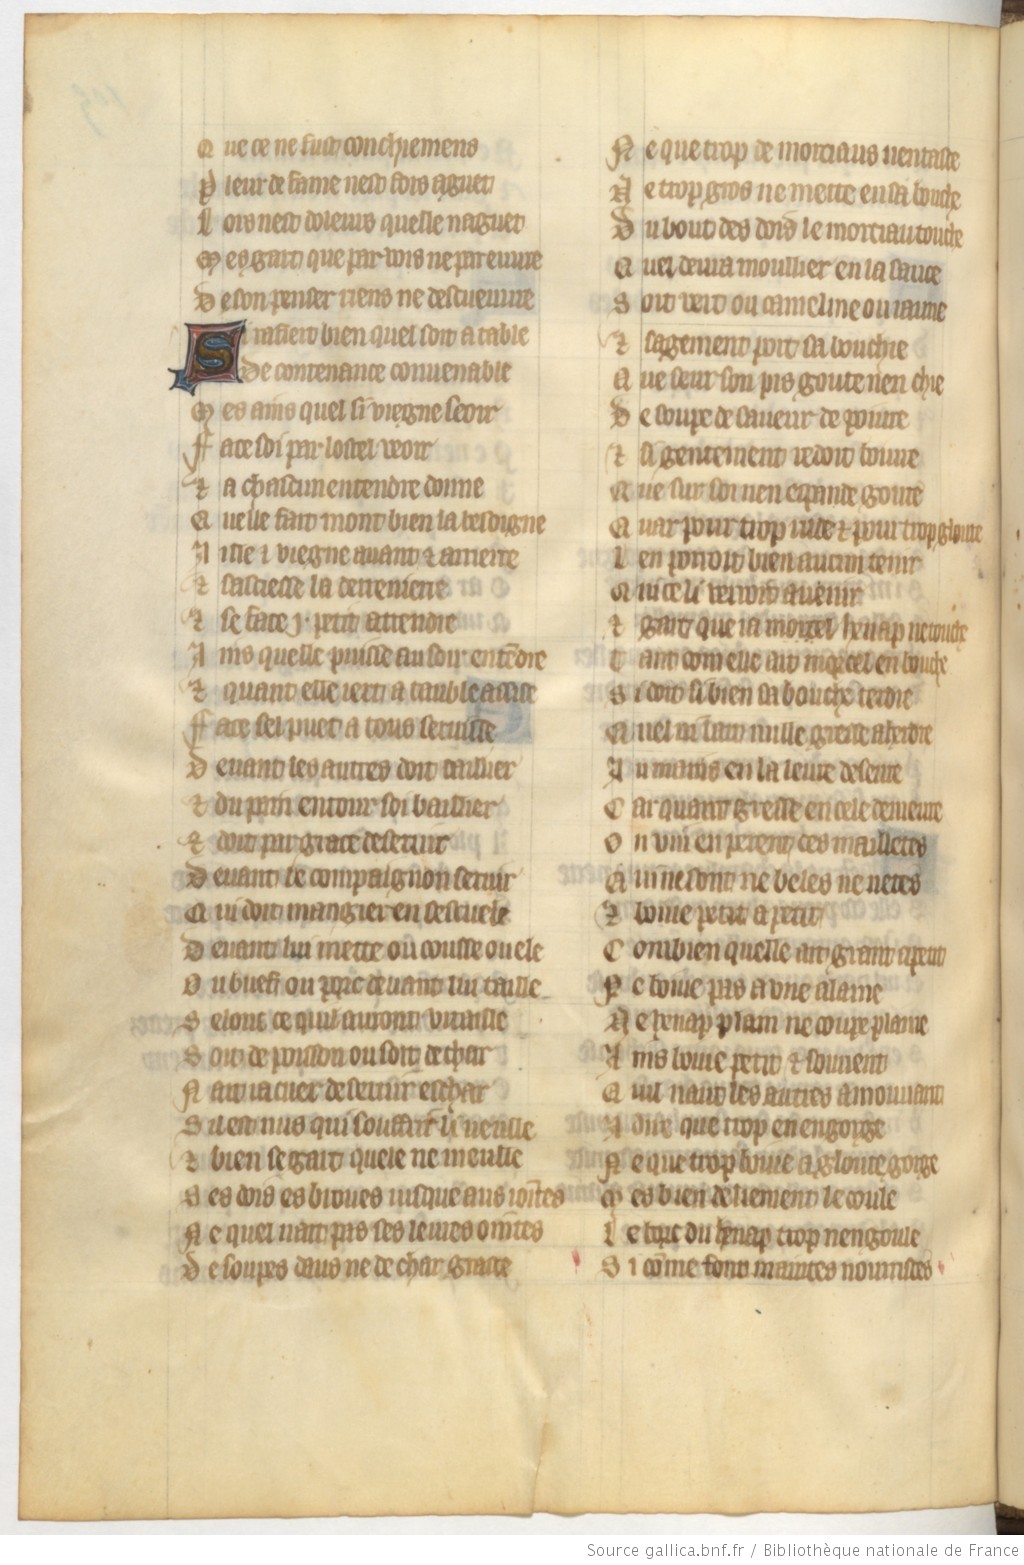 Que ce ne fust conchiemens
Pleur de fame nest fors aguet
Lors nest dolens quelle naguet
Mes gart que par vois ne pereuure
De son penser riens ne descueuure
Si affiert bien quel soit a table
De contenance conuenable
Mes ains quel si viegne seoir
Face soi par lostel veoir
Et a chascun entendre donne
Quelle fait mout bien la besoigne
Aille et viegne auant et arriere
Et sassiesse la derreniere
Et se face .j. petit attendre
Ains quelle puisse au soir entendre
Et quant elle iert a table assise
Face sel puet a tous seruise
Deuant les autres doit taillier
Et du pain entour soi baillier
Et doit par grace deseruir
Deuant le compaignon seruir
Qui doit mangier en sescuele
Deuant lui mette ou cousse ou ele
Ou buef ou porc deuant lui taille
Selonc ce quil auront vitaille
Soit de poisson ou soit de char
Nait ia cuer de seruir eschar
Sil est nus qui souffrir li veulle
Et bien se gart quele ne meulle
Ses dois es broues iusque aus iointes
Ne quel nait pas ses leures ointes
De soupes daus ne de char grasse
Ne que trop de morciaus nentasse
Ne trop gros ne mette en sa bouche
Du bout des dois le morciau touche
Quel deura moullier en la sauce
Soit vert ou cameline ou iaune
Et sagement port sa bouchie
Que seur son pis goute nen chie
De soupe de saueur de poiure
Et si gentement redoit boiure
Que sur soi nen espande goute
Quar pour trop rude et pour trop gloute
Len porroit bien aucun tenir
Qui ce li verroit auenir
Et gart que ia morsel henap ne touche
Tant com elle ait morcel en bouche
Si doit si bien sa bouche terdre
Quel ni lait nulle gresse aherdre
Au mains en la leure deseure
Car quant gresse en cele demeure
On voit en perent des mailletes
Qui ne sont ne beles ne netes
Et boiue petit a petit
Combien quelle ait grant apetit
Ne boiue pas a vne alaine
Ne henap plain ne coupe plaine
Ains boiue petit et souuent
Quil naut les autres amouuant
A dire que trop en engorge
Ne que trop boiue a gloute gorge
Mes bien deliement le coule
Le bort du henap trop nengoule
Si comme font maintes nourrices
Source gallica.bnf.fr / Bibliothèque nationale de France